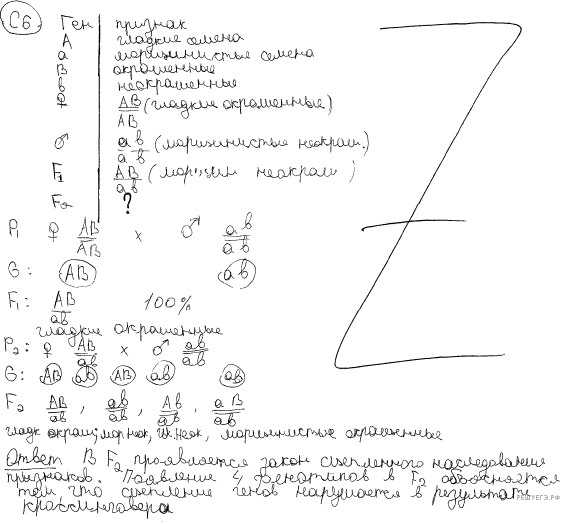 С6 Ген признак
А гладкие семена
а морщинистые семена
В окрашенные
в неокрашенные
♀ АВ/АВ (гладкие окрашенные)
♂ ав/ав (морщинистые неокраш.)
F₁ АВ/ав (морщин неокраш)
F₂ ?
P₁ ♀ АВ/АВ × ♂ ав/ав
G: АВ ав
F₁: АВ/ав 100%
гладкие окрашенные
P₂: ♀ АВ/ав × ♂ ав/ав
G: АВ ав АВ ав ав
F₂ АВ/ав, ав/ав, Ав/ав, аВ/ав
гладк окраш; мор неок, гл. неок, морщинистые окрашенные
Ответ В F₂ проявляется закон сцепленного наследования
признаков. Появление 4 фенотипов в F₂ объясняется
тем что сцепление генов нарушается в результате
кроссинговера
РЕШУЕГЭ.РФ